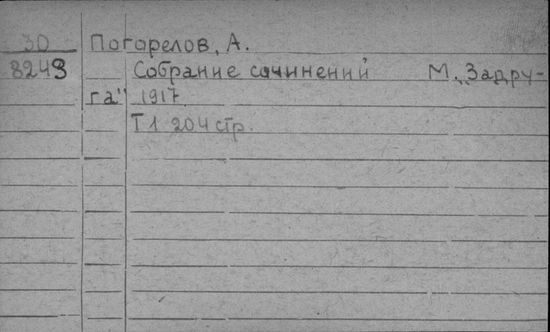 30 Погорелов, А.
8243 Собрание сочинений М. „Задру-
га" 1917
Т 1 204 стр.